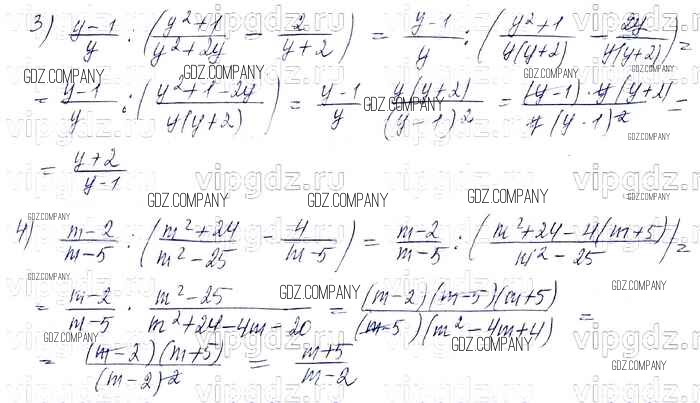 3) \frac{y-1}{y} : \left( \frac{y^2+1}{y^2+2y} - \frac{2}{y+2} \right) = \frac{y-1}{y} : \left( \frac{y^2+1}{y(y+2)} - \frac{2y}{y(y+2)} \right) =
= \frac{y-1}{y} : \left( \frac{y^2+1-2y}{y(y+2)} \right) = \frac{y-1}{y} \cdot \frac{y(y+2)}{(y-1)^2} = \frac{(y-1) \cdot y(y+2)}{y(y-1)^2} =
= \frac{y+2}{y-1}
4) \frac{m-2}{m-5} : \left( \frac{m^2+24}{m^2-25} - \frac{4}{m-5} \right) = \frac{m-2}{m-5} : \left( \frac{m^2+24-4(m+5)}{m^2-25} \right) =
= \frac{m-2}{m-5} \cdot \frac{m^2-25}{m^2+24-4m-20} = \frac{(m-2)(m-5)(m+5)}{(m-5)(m^2-4m+4)} =
= \frac{(m-2)(m+5)}{(m-2)^2} = \frac{m+5}{m-2}
GDZ.COMPANY
vipgdz.ru